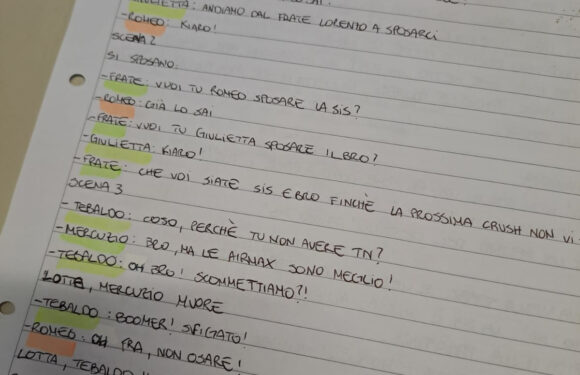 GIULIETTA: ANDIAMO DAL FRATE LORENZO A SPOSARCI
-ROMEO: KIARO!
SCENA 2
SI SPOSANO.
-FRATE: VUOI TU ROMEO SPOSARE LA SIS?
-ROMEO: GIÀ LO SAI
-FRATE: VUOI TU GIULIETTA SPOSARE IL BRO?
-GIULIETTA: KIARO!
-FRATE: CHE VOI SIATE SIS E BRO FINCHÈ LA PROSSIMA CRUSH NON VI
SCENA 3
-TEBALDO: COSO, PERCHÈ TU NON AVERE TN?
-MERCUZIO: BRO, MA LE AIRMAX SONO MEGLIO!
-TEBALDO: OH BRO! SCOMMETTIAMO?!
LOTTA, MERCUZIO MUORE
-TEBALDO: BOOMER! SFIGATO!
-ROMEO: OH FRA, NON OSARE!
LOTTA, TEBALDO